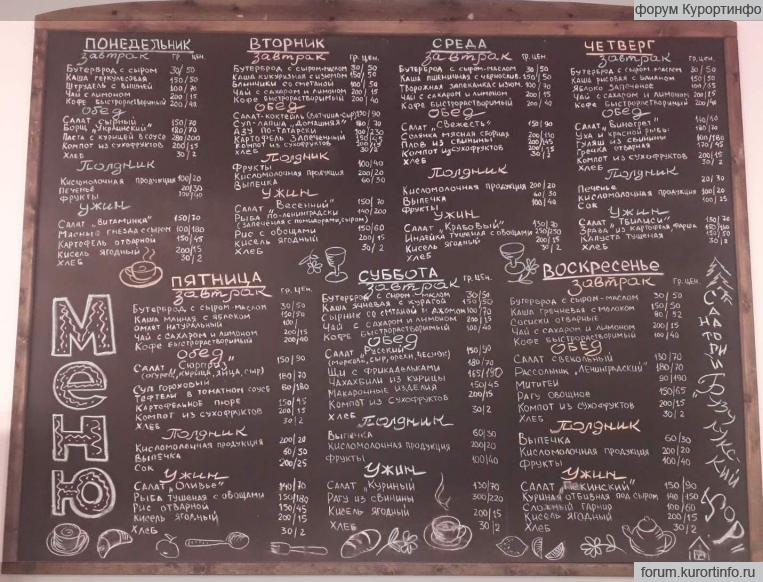 форум Курортинфо
ПОНЕДЕЛЬНИК
завтрак ГР. ЦЕН.
Бутерброд с сыром 30/50
Каша геркулесовая
Штрудель с вишней
Чай с лимоном 200/15
Кофе быстрорастворимый
Обед
Салат „Сырный“ 150/70
Борщ „Украинский“
Паста с курицей в соусе 280/200
Компот из сухофруктов 200/15
Хлеб 30/2
Полдник
Кисломолочная продукция 200/20
Печенье 20/30
Фрукты 100/40
Ужин
Салат „Витаминка“ 150/70
Мясные гнезда с сыром 100/180
Картофель отварной 150/45
Кисель ягодный 200/15
Хлеб 30/2
ВТОРНИК
завтрак ГР. ЦЕН.
Бутерброд с сыром-маслом 30/50
Каша кукурузная с изюмом 150/50
Блинчики со сметаной
Чай с сахаром и лимоном 200/15
Кофе быстрорастворимый 200/40
Обед
Суп-лапша „Домашняя“
Азу по-татарски 100/230
Картофель запеченный
Компот из сухофруктов
Хлеб 30/2
Полдник
Фрукты 100/40
Кисломолочная продукция 200/20
Выпечка 60/30
Ужин
Салат „Весенний“ 150/70
Рыба по-ленинградски 140/200
(запеченная с помидорами, сыром)
Рис с овощами 150/60
Кисель ягодный 200/15
Хлеб 30/2
СРЕДА
завтрак ГР. ЦЕН.
Бутерброд с сыром-маслом 30/50
Каша пшенная с чернослив. 150/50
Творожная запеканка с изюм. 100/70
Чай с сахаром и лимоном 200/15
Кофе быстрорастворимый 200/40
Обед
Салат „Свежесть“
Солянка мясная сборная
Плов из свинины
Компот из сухофруктов
Хлеб 30/2
Полдник
Кисломолочная продукция 200/20
Выпечка 60/30
Фрукты 100/40
Ужин
Салат „Крабовый“ 150/70
Индейка тушеная с овощами
Кисель ягодный 200/15
Хлеб 30/2
ЧЕТВЕРГ
завтрак ГР. ЦЕН.
Бутерброд с сыром-маслом 30/50
Каша рисовая с бананом 150/50
Яблоко запеченное 100/65
Чай с сахаром и лимоном 200/15
Кофе быстрорастворимый 200/40
Обед
Салат „Винегрет“
Уха из красной рыбы
Гуляш из свинины 100/180
Гречка отварная 170/45
Компот из сухофруктов 200/15
Хлеб 30/2
Полдник
Печенье 20/30
Кисломолочная продукция 200/20
Сок 200/25
Ужин
Салат „Тбилиси“ 150/70
Капуста тушеная
Хлеб 30/2
ПЯТНИЦА
завтрак ГР. ЦЕН.
Бутерброд с сыр-маслом 30/50
Каша манная с яблоком 150/50
Омлет натуральный 100/
Чай с сахаром и лимоном 200/15
Кофе быстрорастворимый 200/40
Обед
(огурец, курица, яйца, сыр) 150/90
Суп гороховый 180/70
Тефтели в томатном соусе 80/180
Картофельное пюре 150/45
Компот из сухофруктов 200/15
Хлеб 30/2
Полдник
Кисломолочная продукция 200/20
Выпечка 60/30
Сок 200/25
Ужин
Салат „Оливье“ 140/70
Рыба тушеная с овощами 150/180
Рис отварной 150/45
Кисель ягодный 200/15
Хлеб 30/2
СУББОТА
завтрак ГР. ЦЕН.
Бутерброд с сыром-маслом 30/50
Каша ячневая с курагой 150/50
Сырник со сметаной и джемом 100/70
Чай с сахаром и лимоном 200/15
Кофе быстрорастворимый 100/40
Обед
Салат „Русский“ 150/90
(морковь, сыр, орехи, чеснок)
Щи с фрикадельками 180/70
Чахахбили из курицы 165/190
Макаронные изделия 150/45
Компот из сухофруктов 200/15
Хлеб 30/2
Полдник
Выпечка 60/30
Кисломолочная продукция 200/20
Фрукты 100/40
Ужин
Салат „Куриный“ 130/70
Рагу из свинины 300/220
Кисель ягодный 200/15
Хлеб 30/2
ВОСКРЕСЕНЬЕ
завтрак ГР. ЦЕН.
Бутерброд с сыром-маслом 30/50
Каша гречневая с молоком 150/50
Сосиски отварные 80/52
Чай с сахаром и лимоном 200/15
Кофе быстрорастворимый 100/40
Обед
Салат свекольный 130/70
Рассольник „Ленинградский“ 180/70
Мититеи 90/190
Рагу овощное 150/65
Компот из сухофруктов 200/15
Хлеб 30/2
Полдник
Выпечка 60/30
Кисломолочная продукция 200/20
Фрукты 100/40
Ужин
Салат „Пекинский“ 150/90
Куриная отбивная под сыром 140/150
Сложный гарнир 100/60
Кисель ягодный 200/15
Хлеб 30/2
Меню
Санаторий Бузулукский Бор
forum.kurortinfo.ru